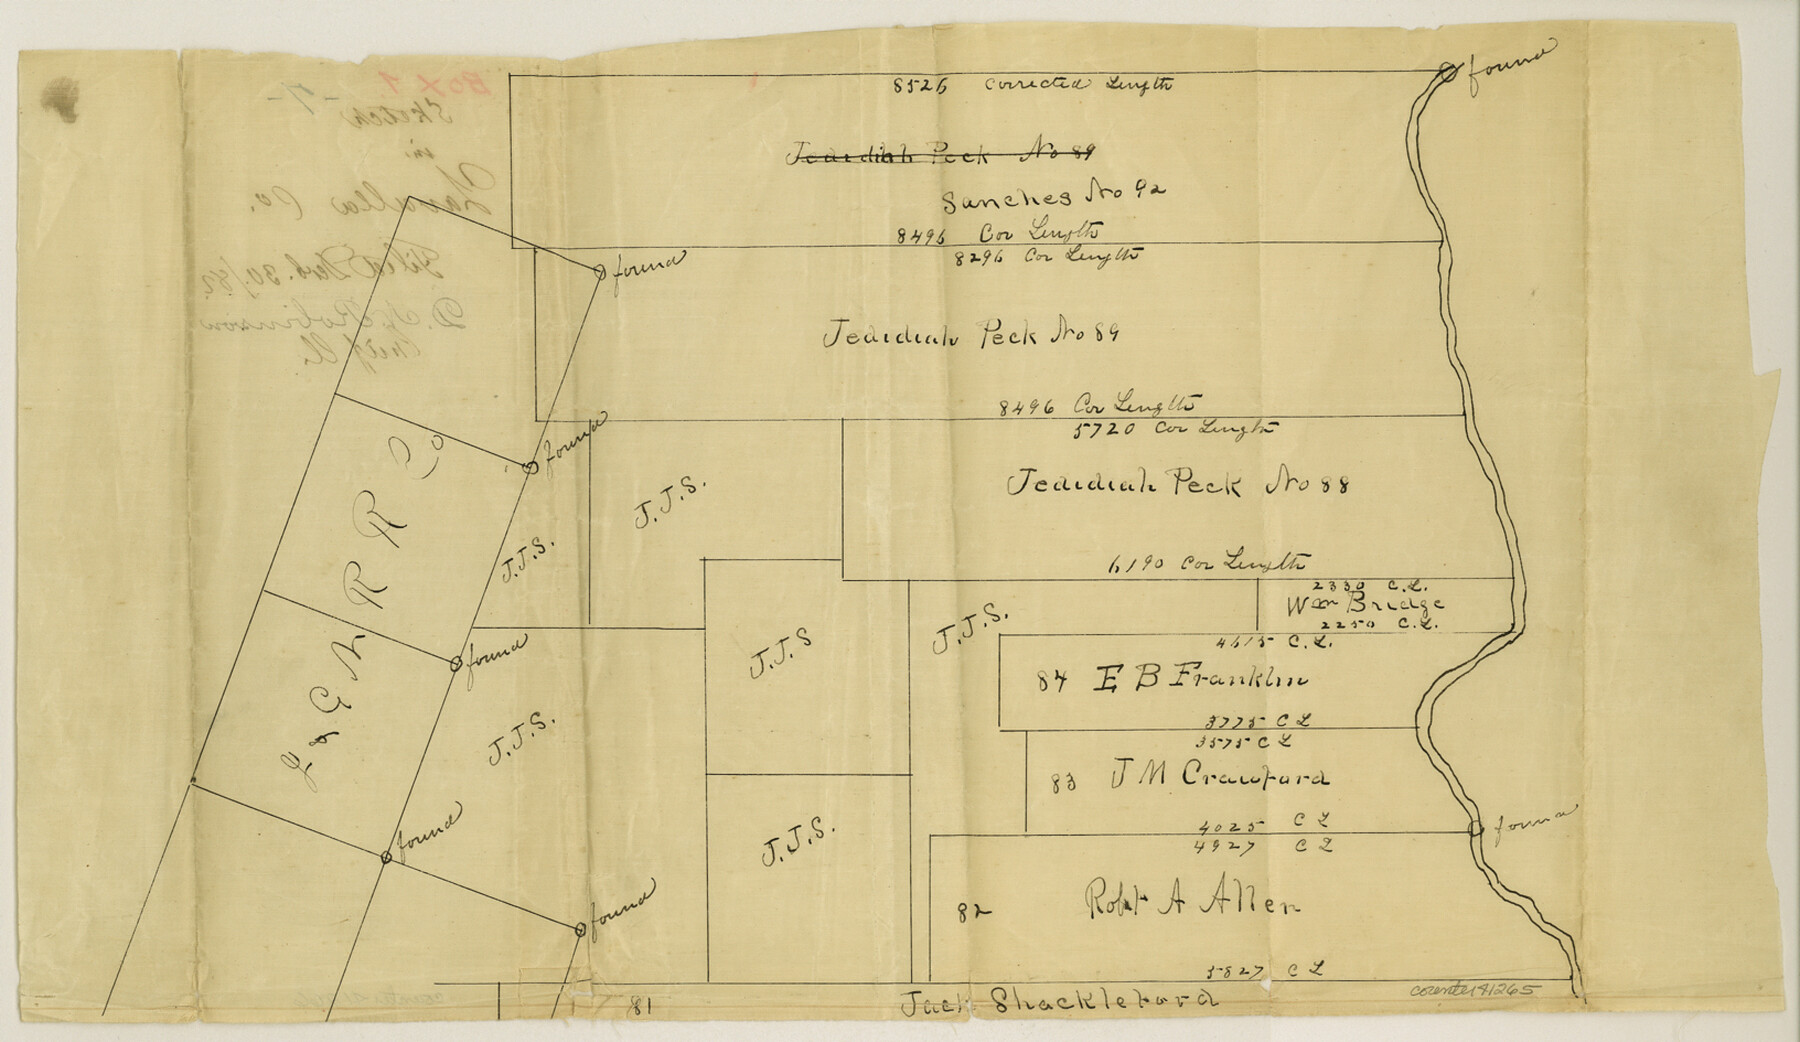 Box 7
-7-
Sketch
in
Zavalla Co.
D. W. Robinson
8526 Corrected Length
found
Jedidiah Peck No 89
Sanches No 92
8496 Cor Length
8296 Cor Length
found
Jedidiah Peck No 89
8496 Cor Length
5720 Cor Length
found
J.J.S.
Jedidiah Peck No 88
J.J.S.
6190 Cor Length
2330 C.L.
Wm Bridge
2250 C.L.
I & G N R R Co
found
J.J.S
J.J.S.
4615 C.L.
84 E B Franklin
3775 C L
3575 C L
J.J.S.
83 J M Crawford
4025 C L
found
4927 C L
found
J.J.S.
82 Robt A Allen
found
5827 C L
81 Jack Shackleford
counter 81265